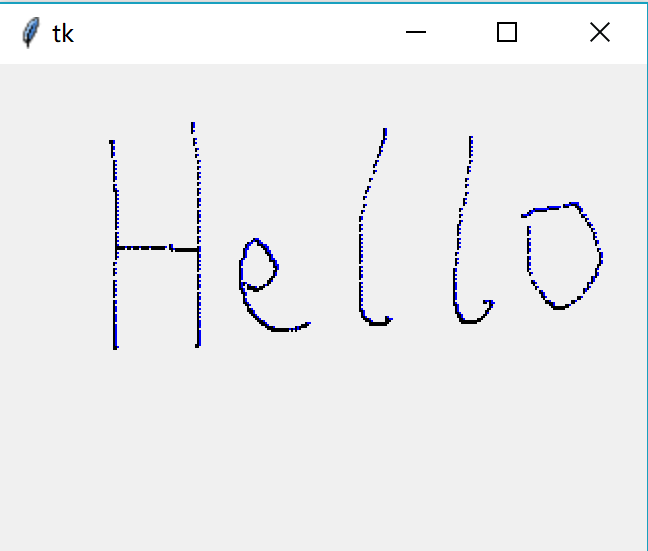 tk
Hello